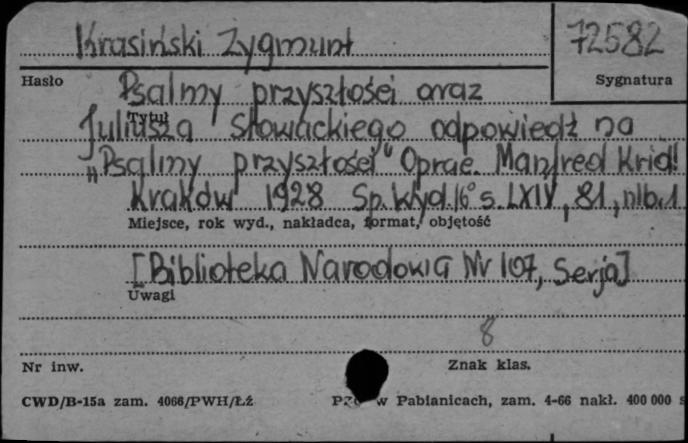 Krasiński Zygmunt 72582
Hasło Sygnatura
Psalmy przyszłości oraz
Tytuł
Juliusza Słowackiego odpowiedź na
„Psalmy przyszłości" Oprac. Manfred Kridl
Kraków 1928 Sp. Wyd. 16° s. LXIV, 81, nlb. 1
Miejsce, rok wyd., nakładca, format, objętość
[Biblioteka Narodowa Nr 107, Serja]
Uwagi
8
Nr inw. Znak klas.
CWD/B-15a zam. 4066/PWH/Łź w Pabianicach, zam. 4-66 nakł. 400 000 s